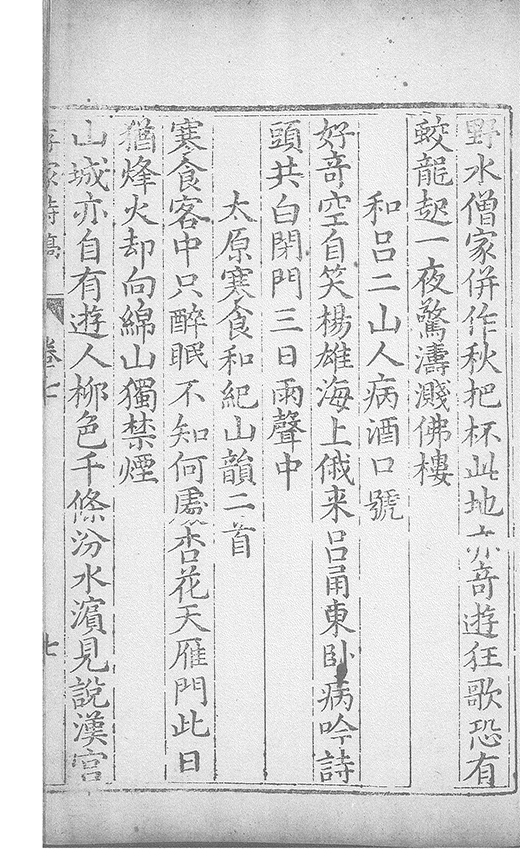 野水僧家併作秋把杯此地亦竒遊狂歌恐有
蛟龍起一夜驚濤濺佛樓
和呂二山人病酒口號
好竒空自笑楊雄海上俄来呂甬東卧病吟詩
頭共白閉門三日雨聲中
太原寒食和紀山韻二首
寒食客中只醉眠不知何處杏花天雁門此日
猶烽火却向綿山獨禁煙
山城亦自有遊人柳色千條汾水濵見說漢宫
卷七
七